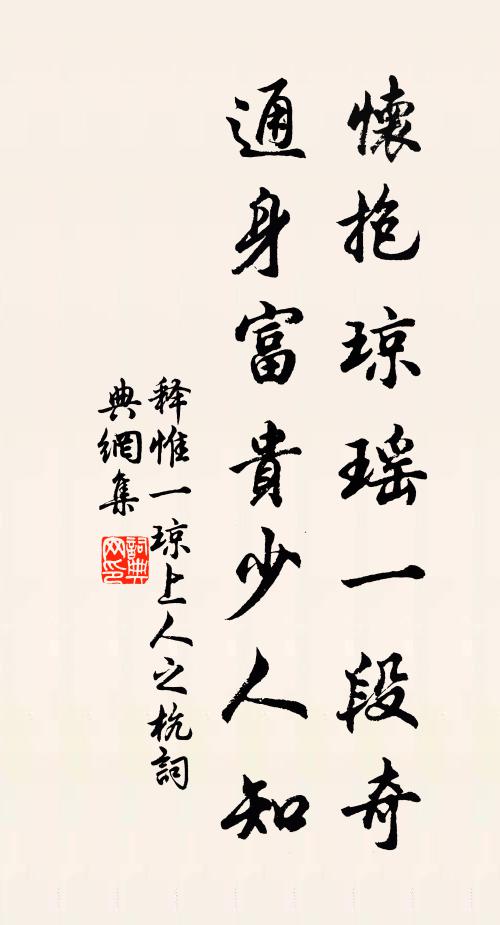 懷抱琼瑶一段奇
通身富貴少人知
释惟一琼上人之杭詞
典網集
詞典网印